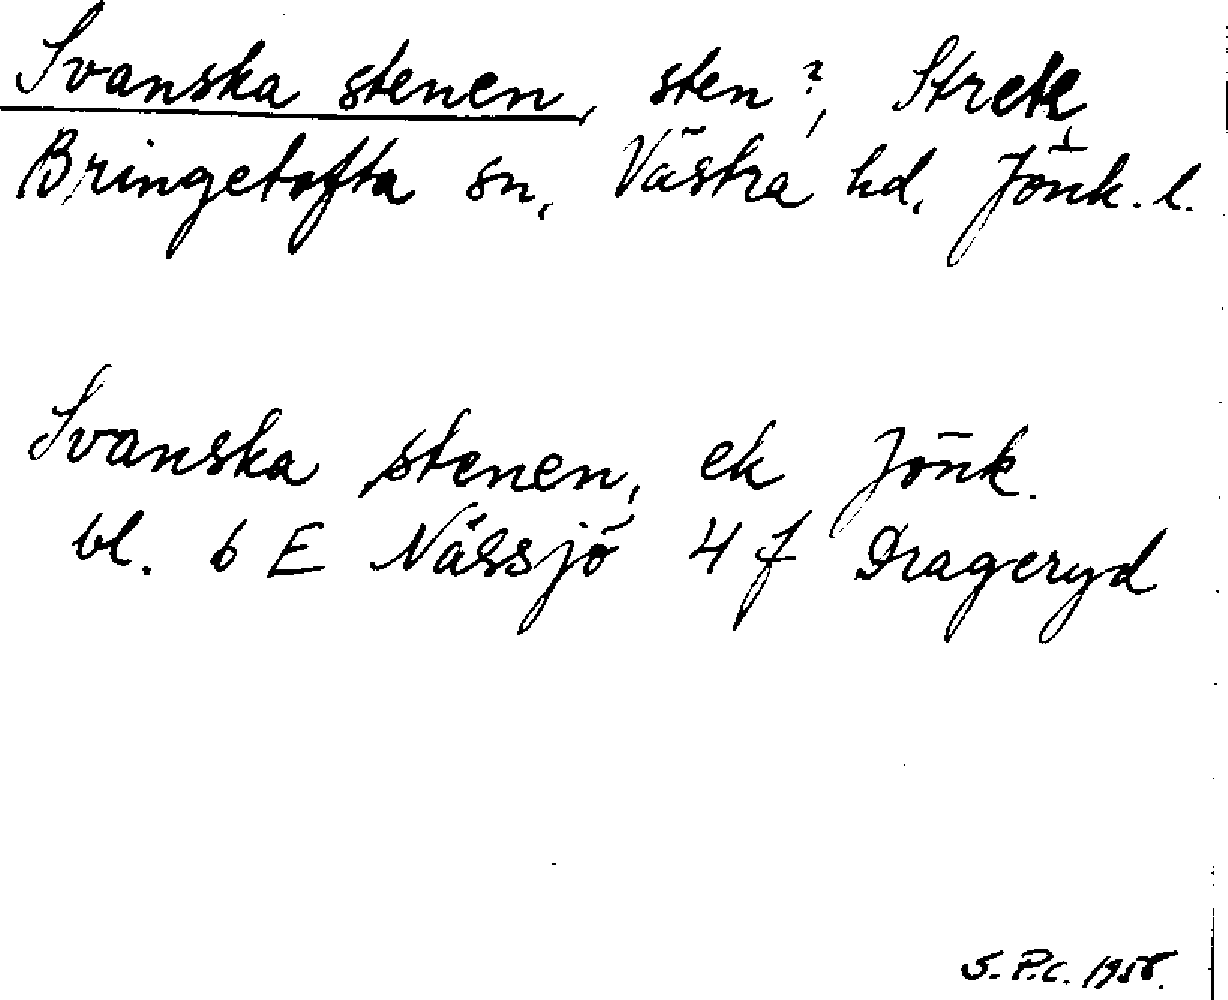 Svanska stenen, sten?, Strete
Bringetofta sn, Västra hd, Jönk. l.
Svanska stenen, ek Jönk.
bl. 6 E Nässjö 4 f Drageryd
S.P.C.